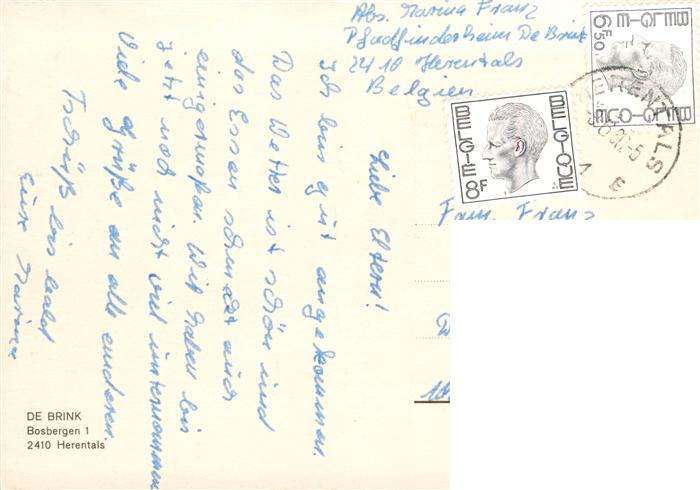 Abs. Marina Franz
Pfadfinderheim De Brink
2410 Herentals
Belgien
BELGIE-BELGIQUE
6F50
BELGIQUE
BELGIE 8F
HERENTALS
Fam. Franz
Liebe Eltern!
Ich bin gut angekommen.
Das Wetter ist schön und
das Essen schmeckt auch
einigermaßen. Wir haben bis
jetzt noch nicht viel unternommen
Viele Grüße an alle anderen.
Tschüß bis bald
Eure Marina
DE BRINK
Bosbergen 1
2410 Herentals